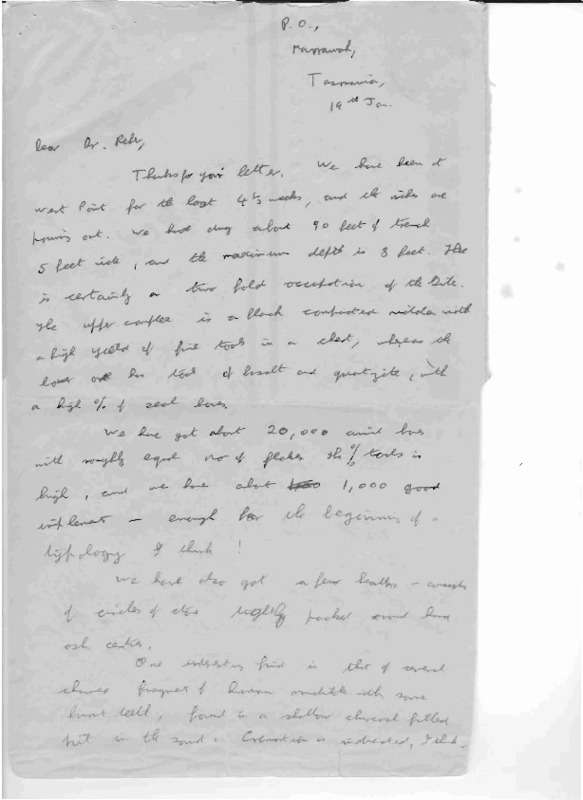 P.O.,
Marrawah,
Tasmania,
19th Jan.
Dear Dr.
Thanks for your letter. We have been at
West Point for the last 4½ weeks, and the riches are
pouring out. We have dug about 90 feet of trench
5 feet wide, and the maximum depth is 8 feet. There
is certainly a two fold occupation of the site.
The upper complex is a black compacted midden with
a high yield of fine tools in a chert, whereas the
lower one has tools of basalt and quartzite, with
a high % of seal bones.
We have got about 20,000 animal bones
with roughly equal no of flakes. The % tools is
high, and we have about 1,000 good
implements – enough for the beginning of a
typology I think!
We have also got a few hearths – consists
of circles of stone tightly packed around
ash centres.
One interesting find is that of several
charred fragments of human mandible with some
burnt teeth, found in a shallow charcoal filled
pit in the sand. Cremation is indicated, I think.